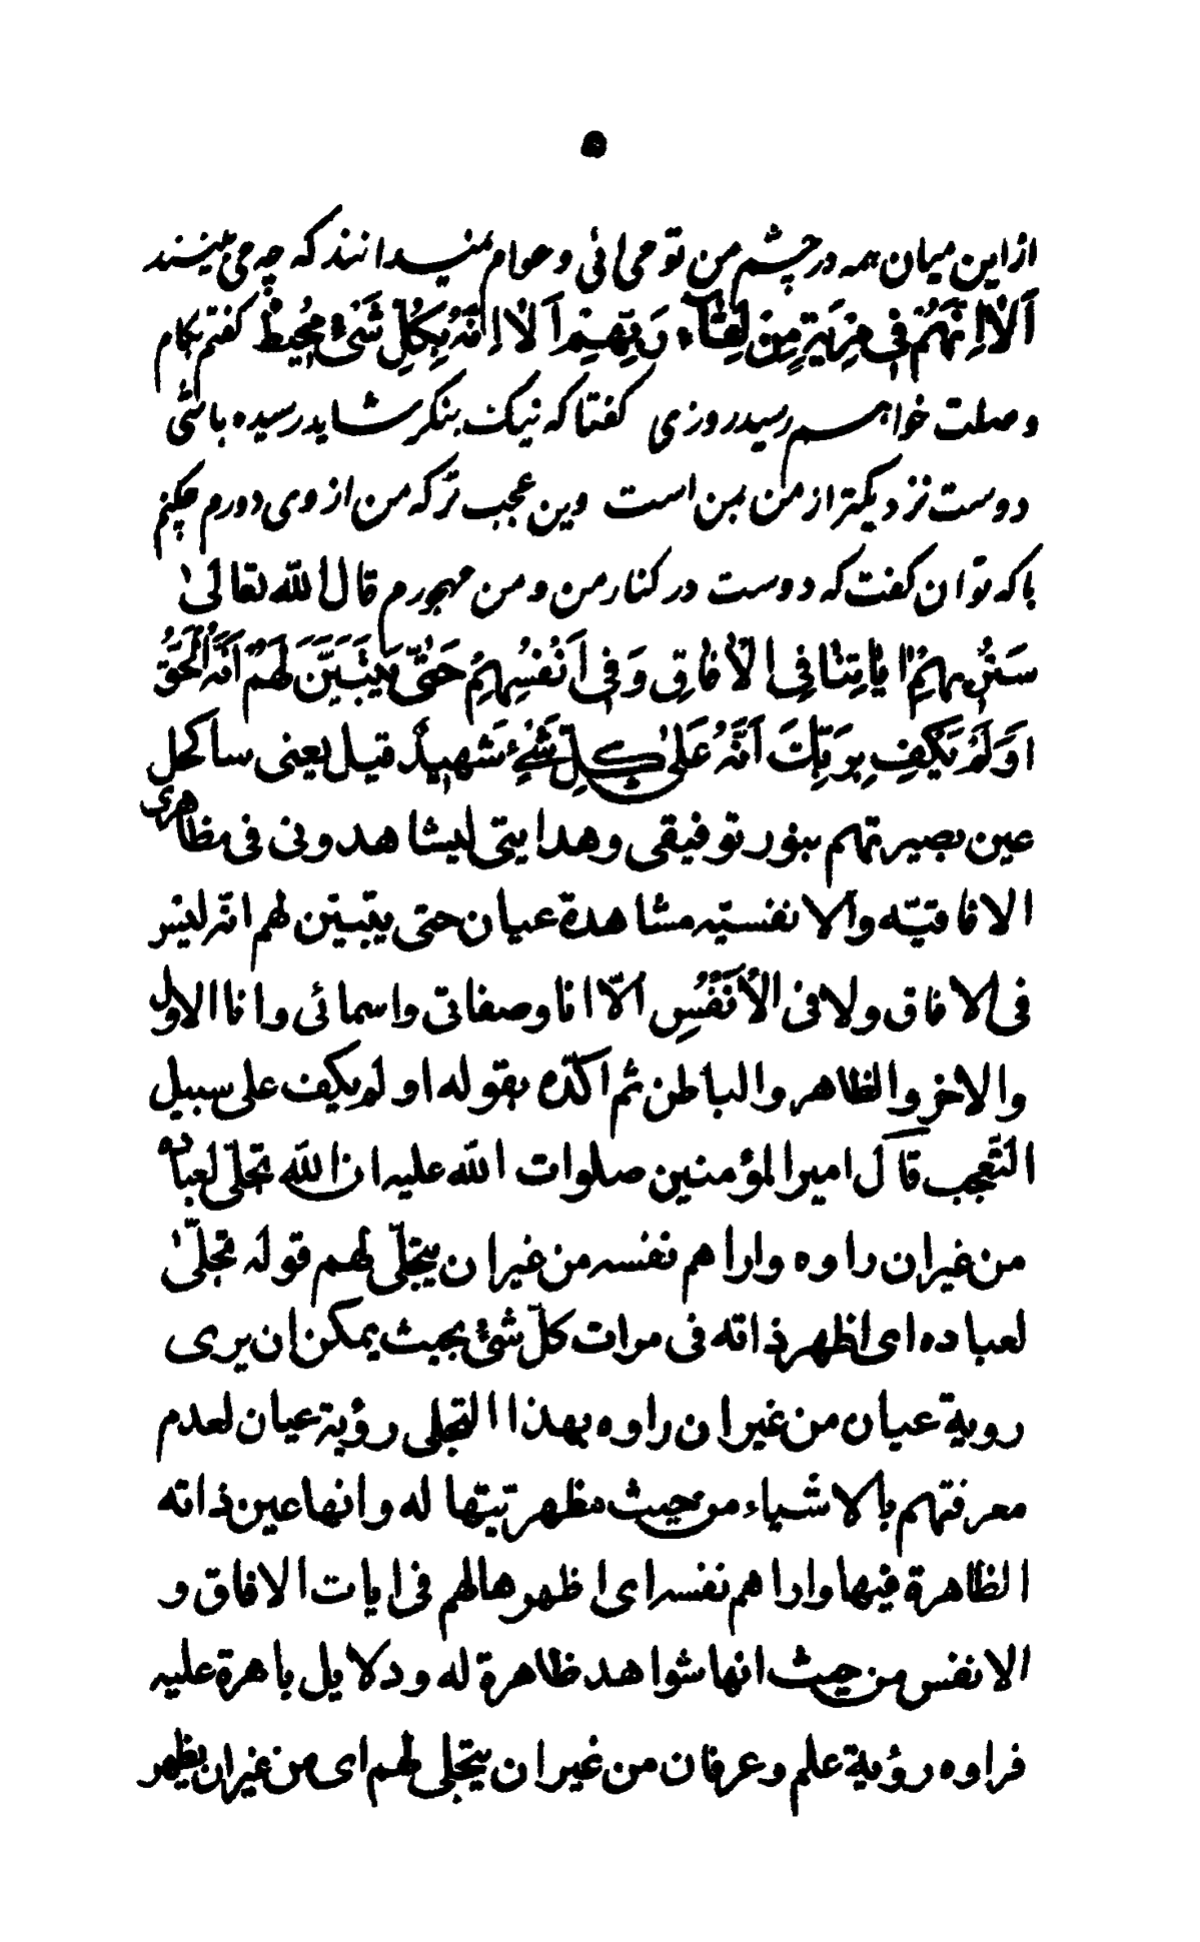 ۵
از این میان همه در چشم من تو می آئی و عوام نمیدانند که چه می بینند
اَلا اِنَّهُمْ فی مِرْیَةٍ مِنْ لِقاءِ رَبِّهِمْ اَلا اِنَّهُ بِکُلِّ شَیْءٍ مُحیطٌ گفتم بکام
وصلت خواهم رسید روزی گفتا که نیک بنگر شاید رسیده باشی
دوست نزدیکتر از من بمن است وین عجب تر که من از وی دورم چکنم
با که توان گفت که دوست در کنار من و من مهجورم قال الله تعالیٰ
سَنُریهِمْ ایاتِنا فِی الْافاقِ وَفی اَنْفُسِهِمْ حَتّیٰ یَتَبَیَّنَ لَهُمْ اَنَّهُ الْحَقُّ
اَوَلَمْ یَکْفِ بِرَبِّکَ اَنَّهُ عَلیٰ کُلِّ شَیْءٍ شَهیدٌ قیل یعنی ساکحل
عین بصیرتهم بنور توفیقی وهدایتی لیشاهدونی فی مظاهری
الافاقیّه والانفسیّه مشاهدة عیان حتی یتبیّن لهم انّه لیس
فی الافاق ولا فی الْاَنْفُسِ الّا انا وصفاتی واسمائی وانا الاول
والاخر والظاهر والباطن ثم اکدّه بقوله اولم یکف علی سبیل
التَّعجب قال امیر المؤمنین صلوات الله علیه ان الله تجلّی لعباده
من غیر ان راوه واراهم نفسه من غیر ان یتجلّی لهم قوله تجلّیٰ
لعباده ای اظهر ذاته فی مرات کلّ شیْء بحیث یمکن ان یری
رویة عیان من غیر ان راوه بهذا التجلی رؤیة عیان لعدم
معرفتهم بالاشیاء من حیث مظهریّتها له وانها عین ذاته
الظاهرة فیها واراهم نفسه ای اظهرها لهم فی ایات الافاق و
الانفس من حیث انها شواهد ظاهرة له ودلایل باهرة علیه
فراوه رؤیة علم وعرفان من غیر ان یتجلی لهم ای من غیر ان یظهر